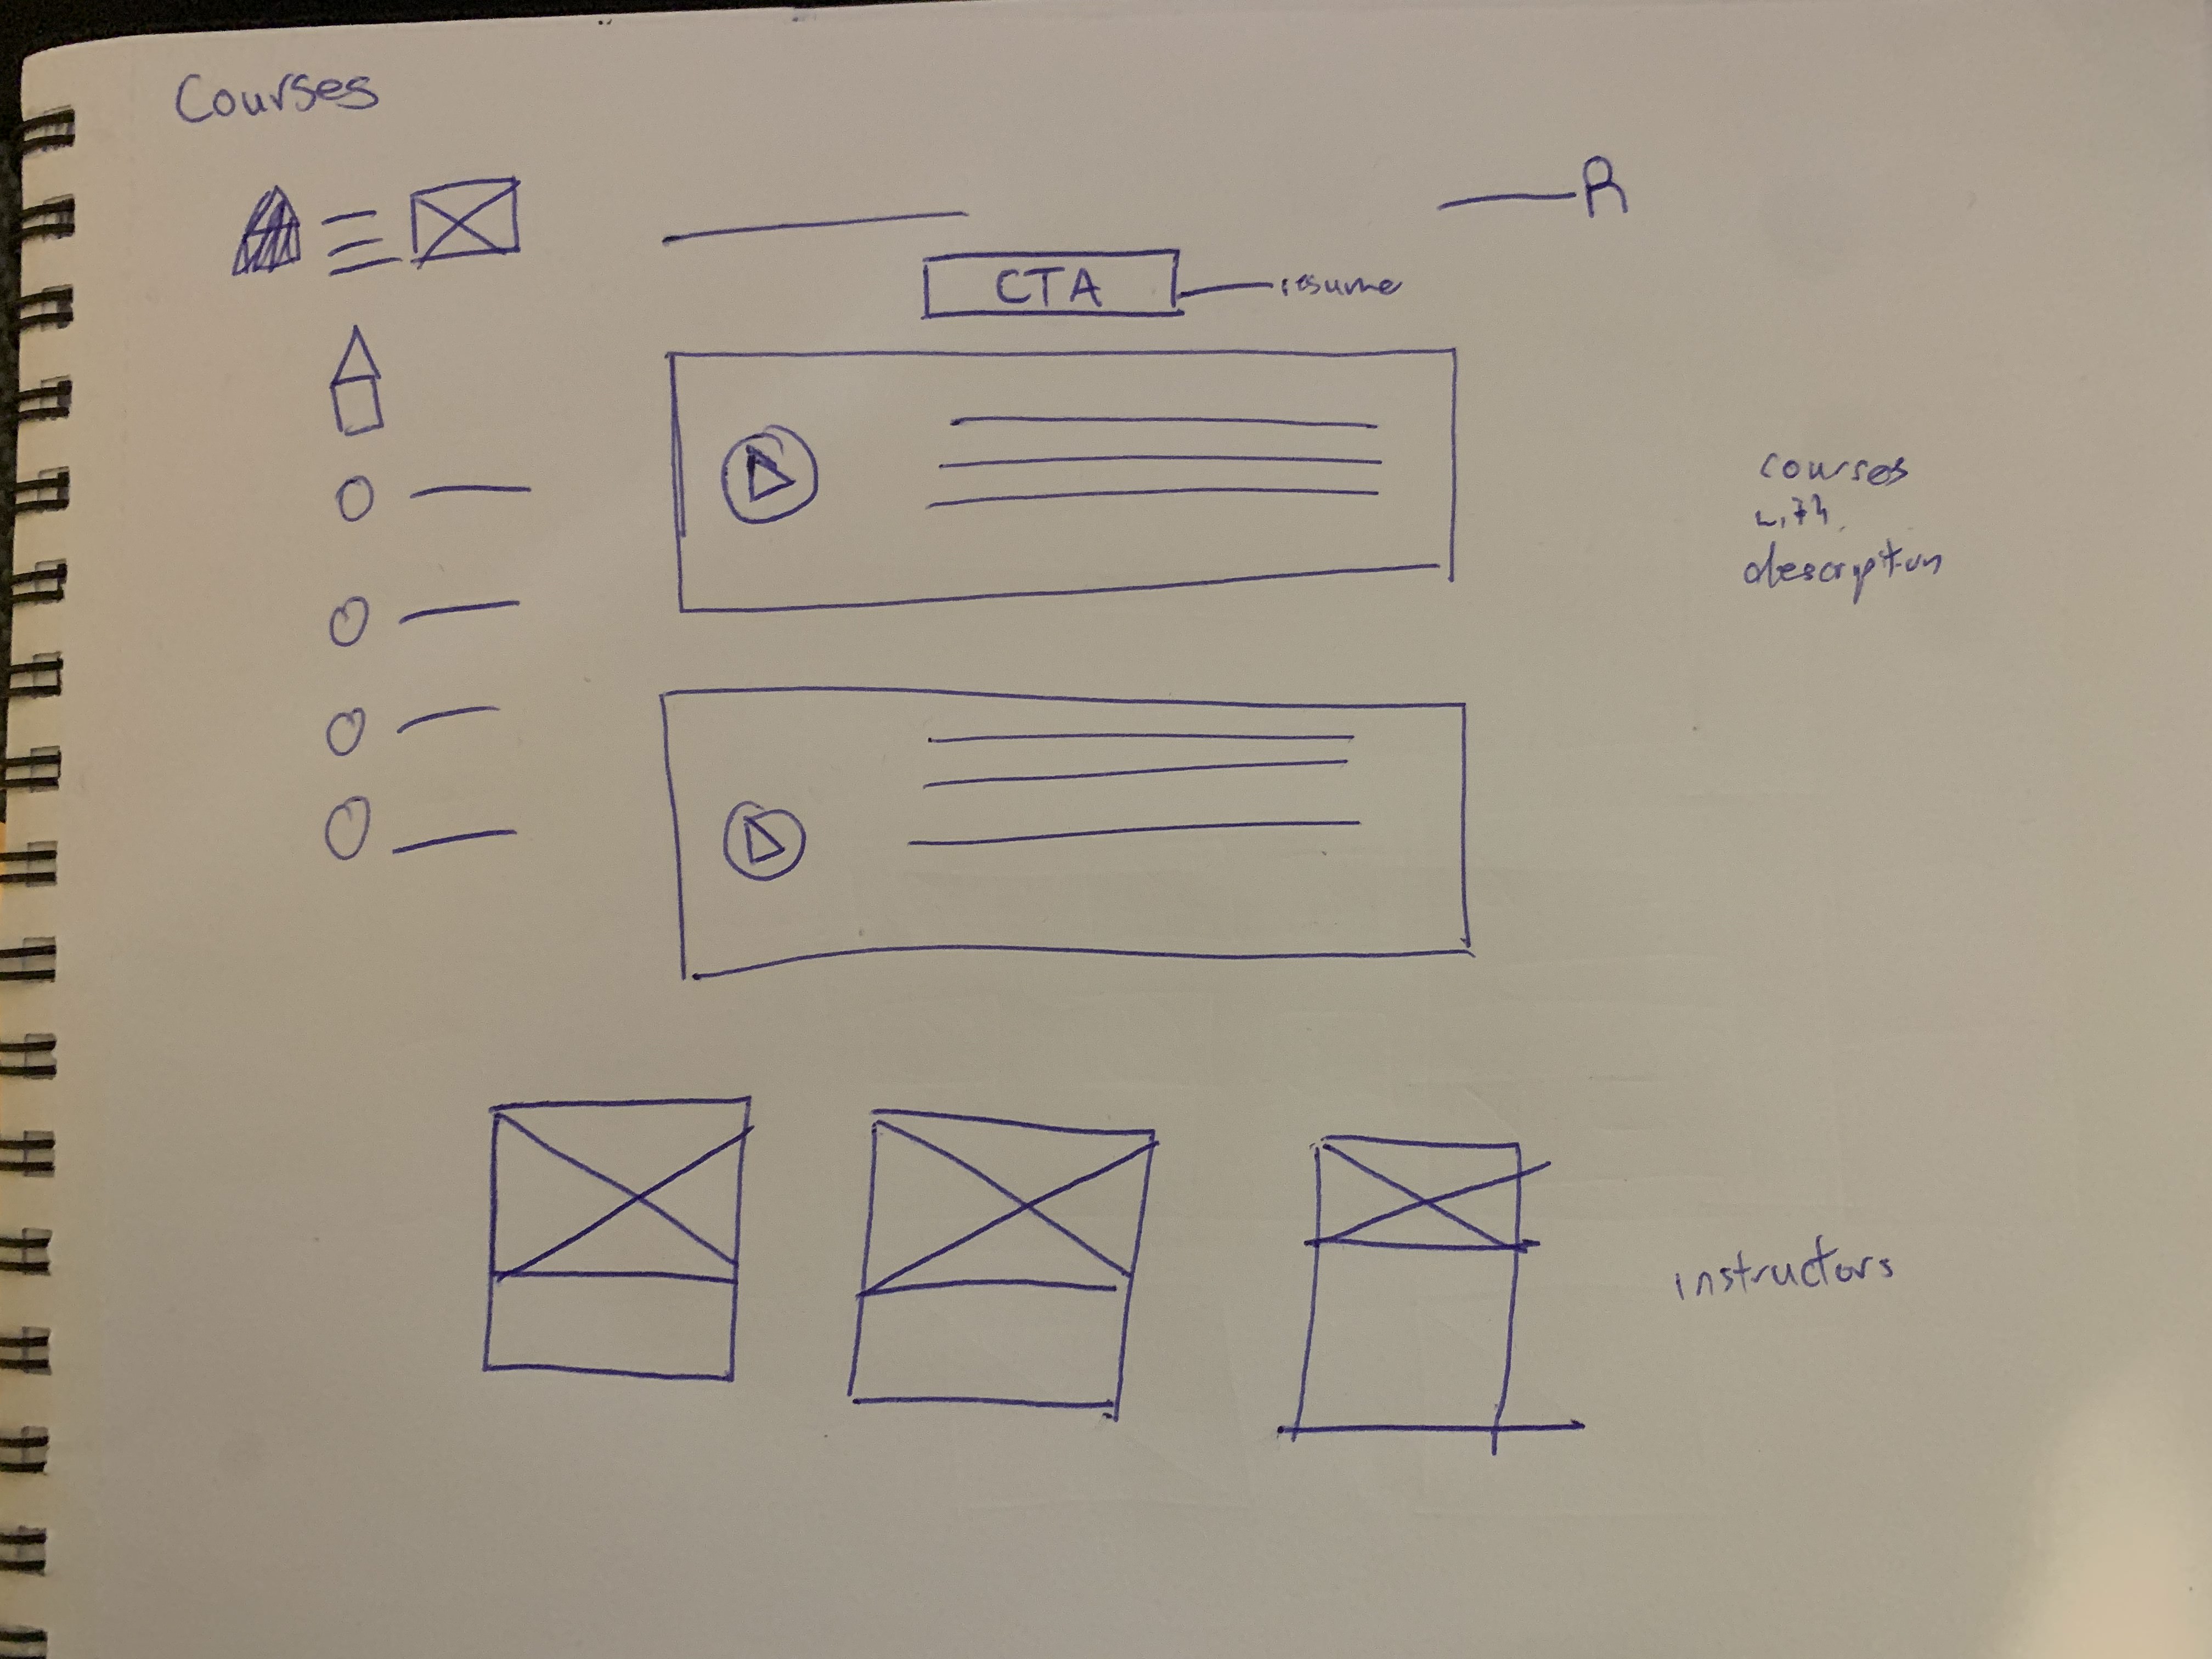 Courses
CTA
resume
courses
with
description
instructors